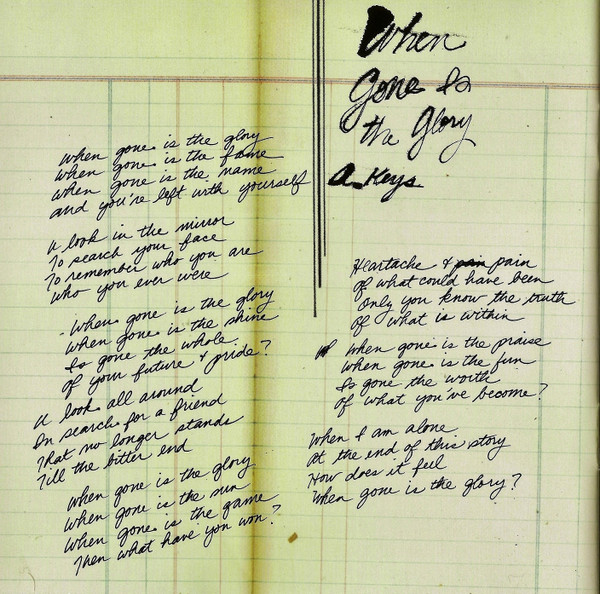 When
Gone Is
the Glory
A. Keys
When gone is the glory
When gone is the fame
When gone is the name
and you're left with yourself
A look in the mirror
To search your face
To remember who you are
Who you ever were
When gone is the glory
When gone is the shine
Is gone the whole
Of your future & pride?
A look all around
In search for a friend
That no longer stands
Till the bitter end
When gone is the glory
When gone is the sun
When gone is the game
Then what have you won?
Heartache & pain pain
Of what could have been
Only you know the truth
Of what is within
When gone is the praise
When gone is the fun
Is gone the worth
Of what you've become?
When I am alone
At the end of this story
How does it feel
When gone is the glory?